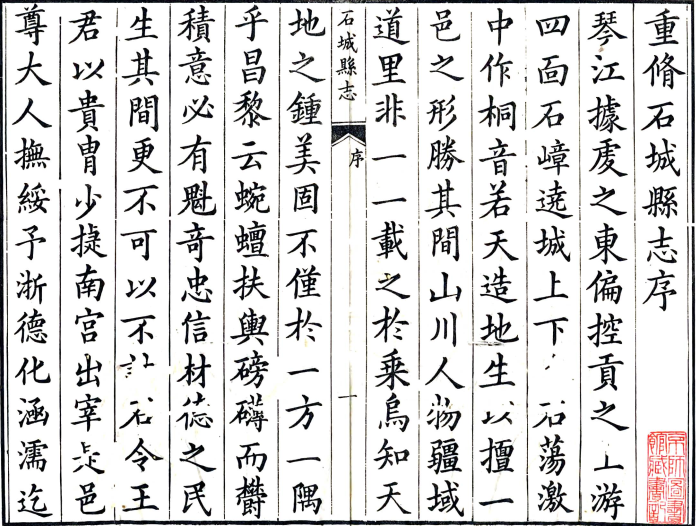 重脩石城縣志序
琴江據虔之東偏控貢之上游
四面石嶂遶城上下石蕩激
中作桐音若天造地生以擅一
邑之形勝其間山川人物疆域
道里非一一載之於乗烏知天
石城縣志
序
一
地之鍾美固不僅於一方一隅
乎昌黎云蜿蟺扶輿磅礴而欝
積意必有魁奇忠信材德之民
生其間更不可以不誌石令王
君以貴胄少捷南宮出宰是邑
尊大人撫綏予浙德化涵濡迄
京師圖書館藏書記